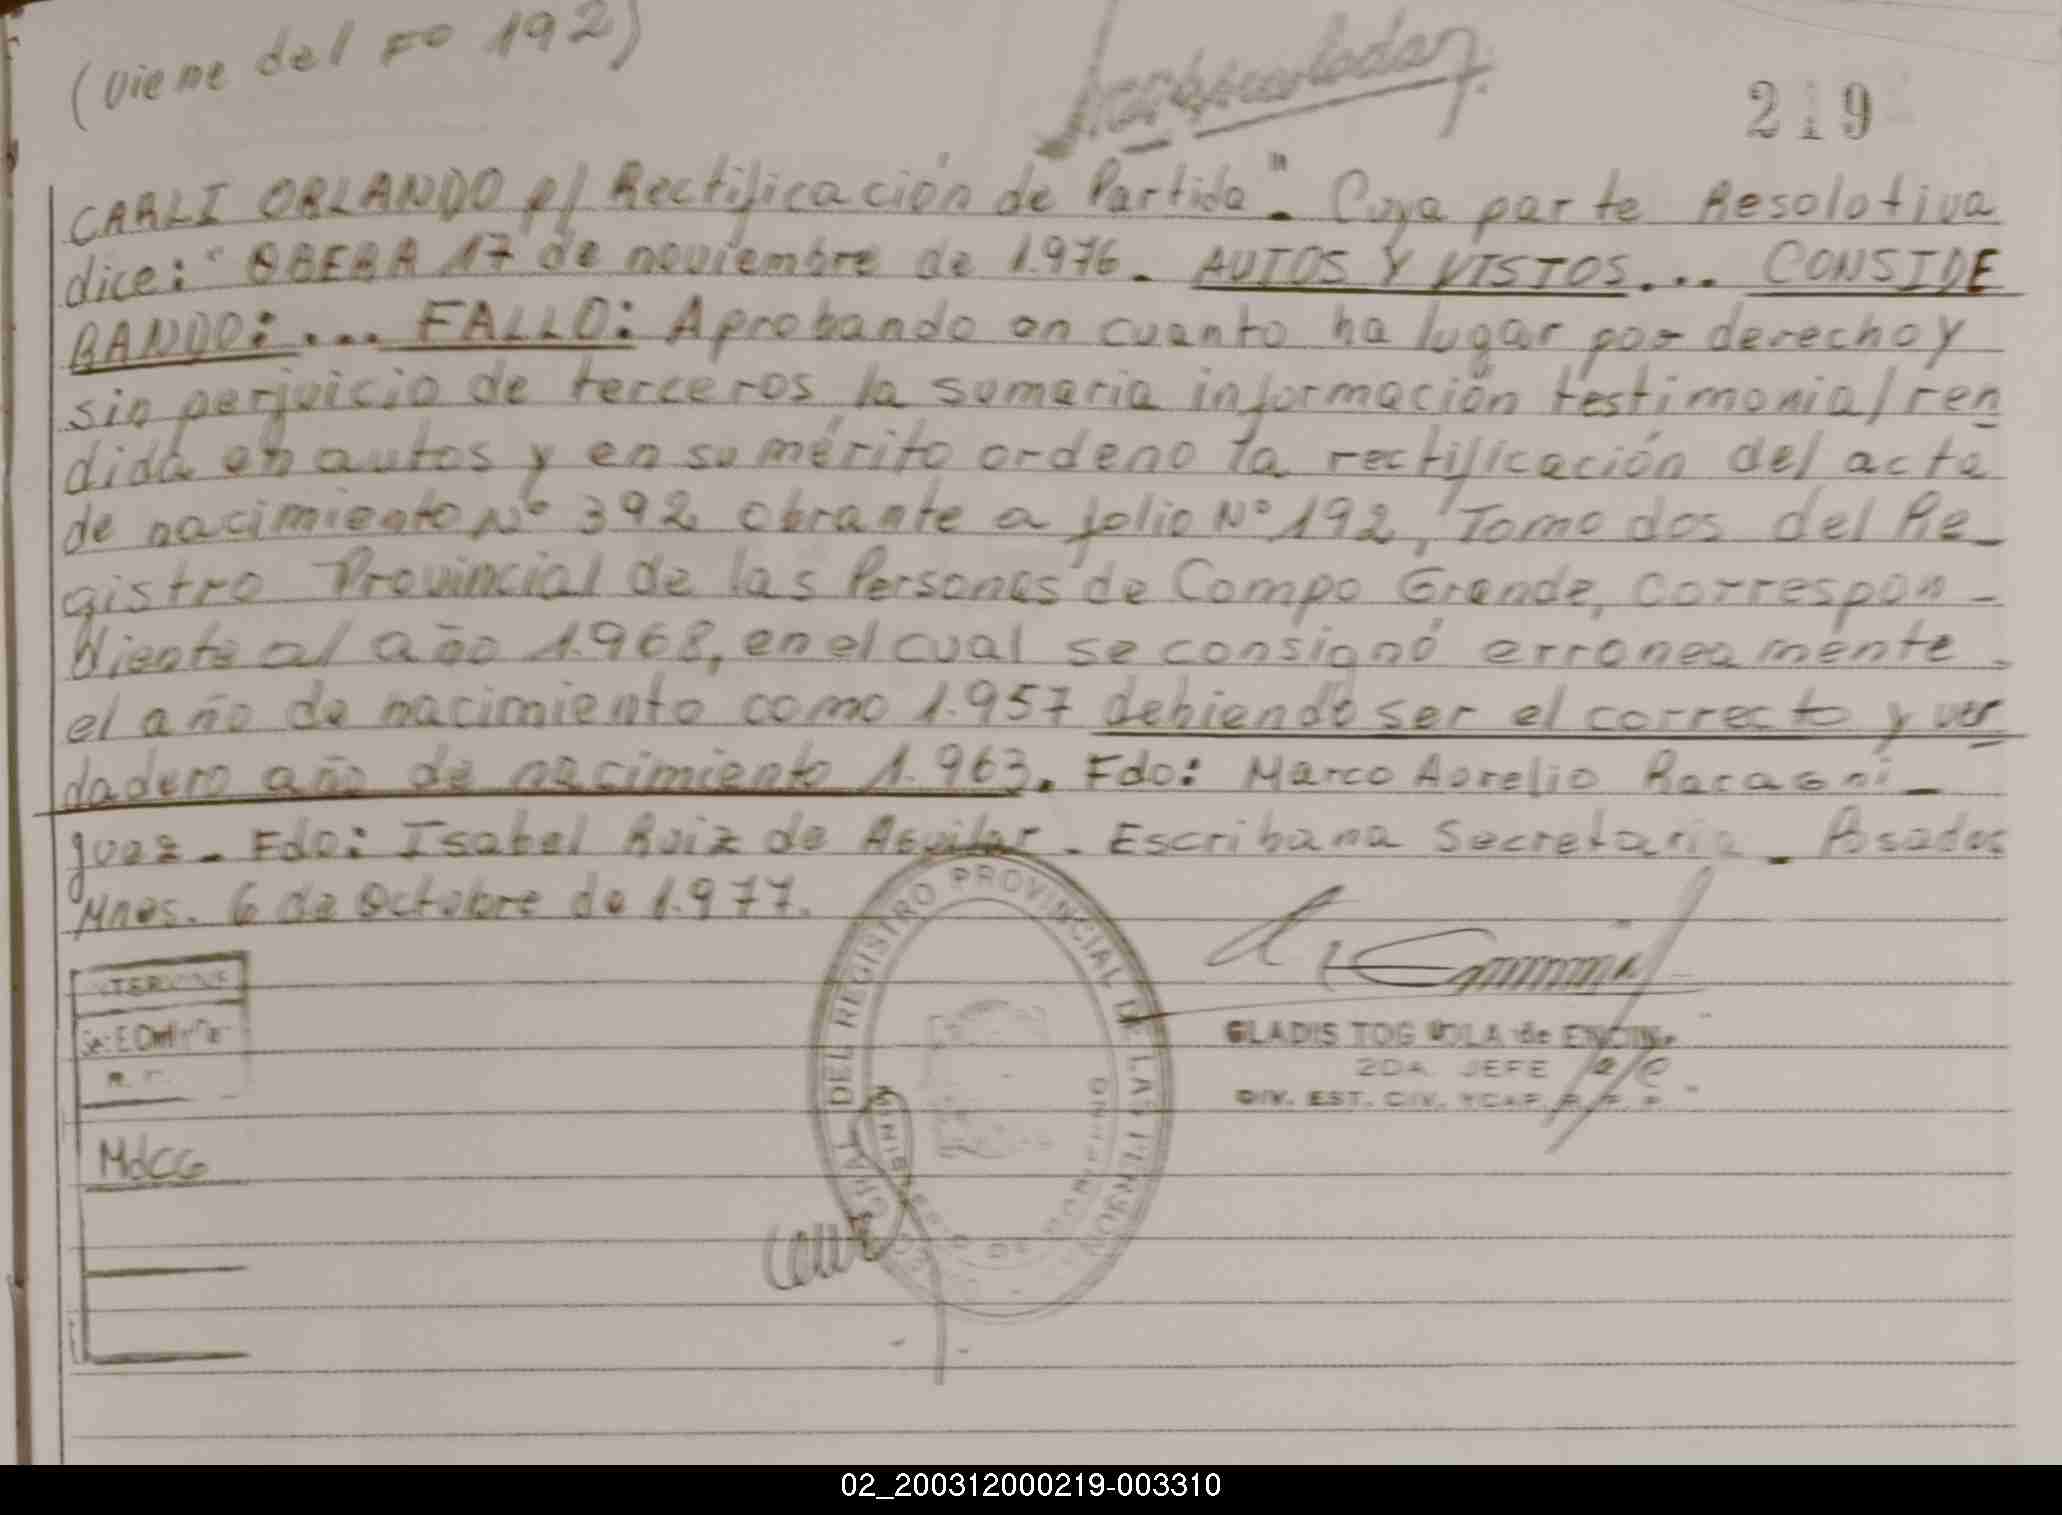 (viene del Fo 192)
219
CARLI ORLANDO p/ Rectificación de Partida". Cuya parte Resolutiva
dice: "OBERA 17 de noviembre de 1.976. AUTOS Y VISTOS... CONSIDE
RANDO:... FALLO: Aprobando en cuanto ha lugar por derecho y
sin perjuicio de terceros la sumaria información testimonial ren
dida en autos y en su mérito ordeno la rectificación del acta
de nacimiento Nº 392 obrante a folio Nº 192, Tomo dos del Re_
gistro Provincial de las Personas de Campo Grande, correspon-
diente al año 1.968, en el cual se consignó erroneamente
el año de nacimiento como 1.957 debiendo ser el correcto y ver
dadero año de nacimiento 1.963. Fdo: Marco Aurelio
Juez. Fdo: Isabel Ruiz de Aguilar. Escribana Secretaria. Posadas
Mnes. 6 de Octubre de 1.977.
DEL REGISTRO PROVINCIAL DE LAS PERSONAS
GLADIS de
2DA JEFE a/c
DIV. EST. CIV. YCAP. R. P. P.
MdCG
02_200312000219-003310